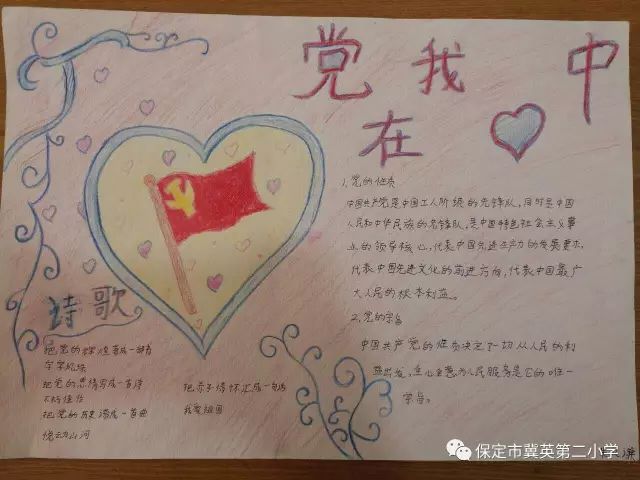 党 我 中
在
1、党的性质
中国共产党是中国工人阶级的先锋队，同时是中国
人民和中华民族的先锋队，是中国特色社会主义事
业的领导核心，代表中国先进生产力的发展要求，
代表中国先进文化的前进方向，代表中国最广
大人民的根本利益。
2、党的宗旨
中国共产党的性质决定了一切从人民的利
益出发，全心全意为人民服务是它的唯一
宗旨。
诗歌
把党的辉煌
把党的思情写成一首诗
不朽佳作
把党的历史谱成一首曲
山河
把赤子情怀汇成一句话
我爱祖国
保定市冀英第二小学